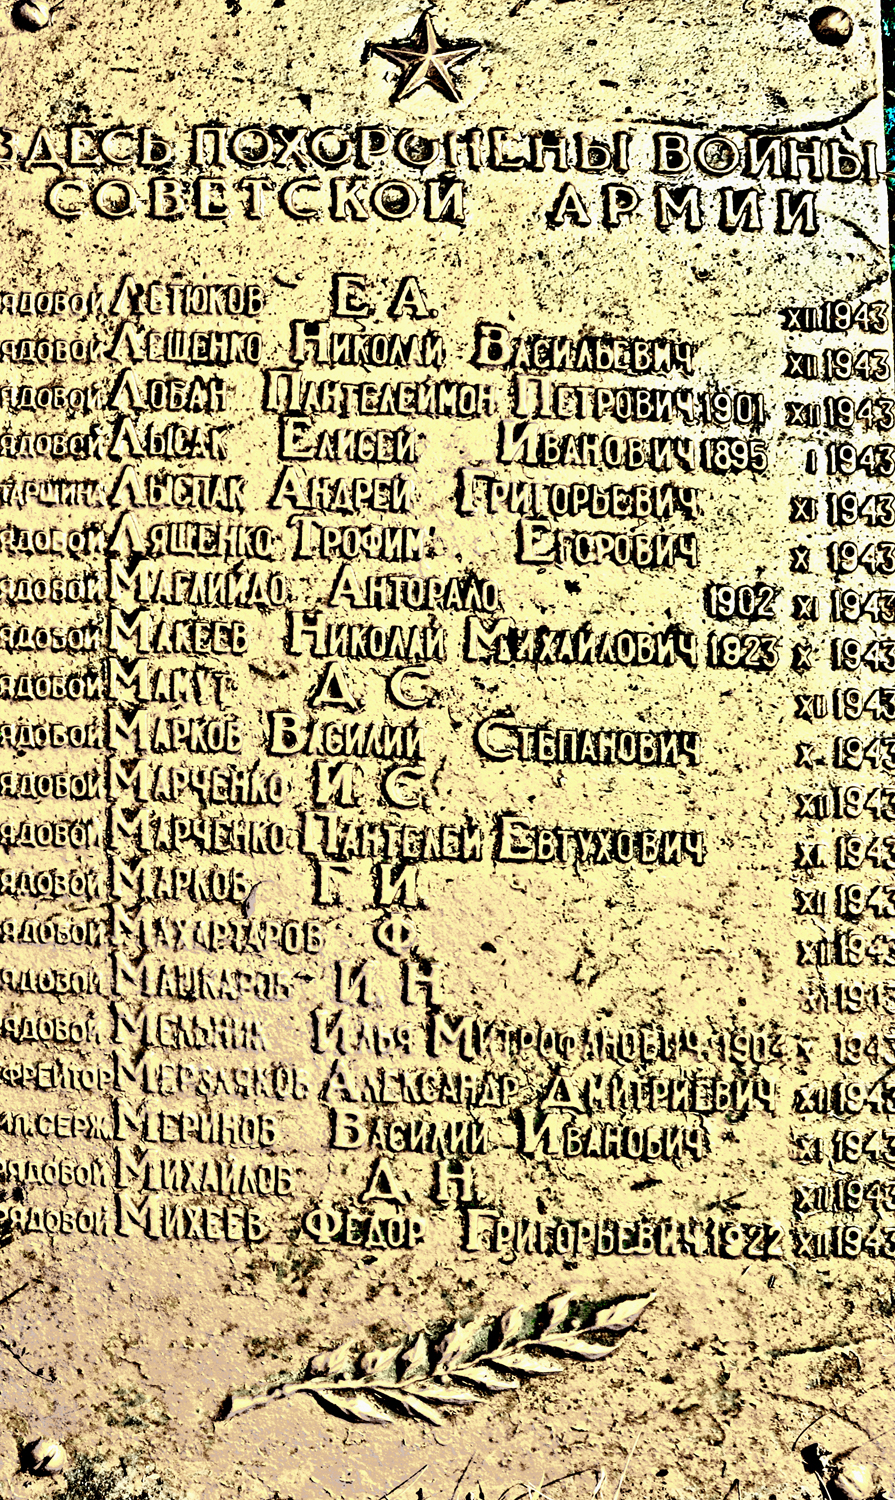 ЗДЕСЬ ПОХОРОНЕНЫ ВОИНЫ
СОВЕТСКОЙ АРМИИ
РЯДОВОЙ ЛЕТЮКОВ Е. А. XII 1943
РЯДОВОЙ ЛЕЩЕНКО НИКОЛАЙ ВАСИЛЬЕВИЧ XII 1943
РЯДОВОЙ ЛОБАН ПАНТЕЛЕЙМОН ПЕТРОВИЧ 1901 XII 1943
РЯДОВОЙ ЛЫСАК ЕЛИСЕЙ ИВАНОВИЧ 1895 I 1943
СТАРШИНА ЛЫСПАК АНДРЕЙ ГРИГОРЬЕВИЧ XI 1943
РЯДОВОЙ ЛЯЩЕНКО ТРОФИМ ЕГОРОВИЧ X 1943
РЯДОВОЙ АНТОРАЛО 1902 XI 1943
РЯДОВОЙ МАКЕЕВ НИКОЛАЙ МИХАЙЛОВИЧ X 1943
РЯДОВОЙ Д Є XII 1943
РЯДОВОЙ МАРКОВ ВАСИЛИЙ СТЕПАНОВИЧ X 1943
РЯДОВОЙ МАРЧЕНКО И Є XII 1943
РЯДОВОЙ МАРЧЕНКО ПАНТЕЛЕЙ ЕВТУХОВИЧ 1943
РЯДОВОЙ МАРКОВ Г И XII 1943
РЯДОВОЙ МАХАРТАРОВ Ф XII 1943
РЯДОВОЙ И Н
РЯДОВОЙ МЕЛЬНИК ИЛЬЯ МИТРОФАНОВИЧ 1904 X 1943
ЕФРЕЙТОР МЕРЗЛЯКОВ АЛЕКСАНДР ДМИТРИЕВИЧ XII 1943
МЛ.СЕРЖ. МЕРИНОВ ВАСИЛИЙ ИВАНОВИЧ XI 1943
РЯДОВОЙ МИХАЙЛОВ Д Н XII 1943
РЯДОВОЙ МИХЕЕВ ФЕДОР ГРИГОРЬЕВИЧ 1922 XII 1943